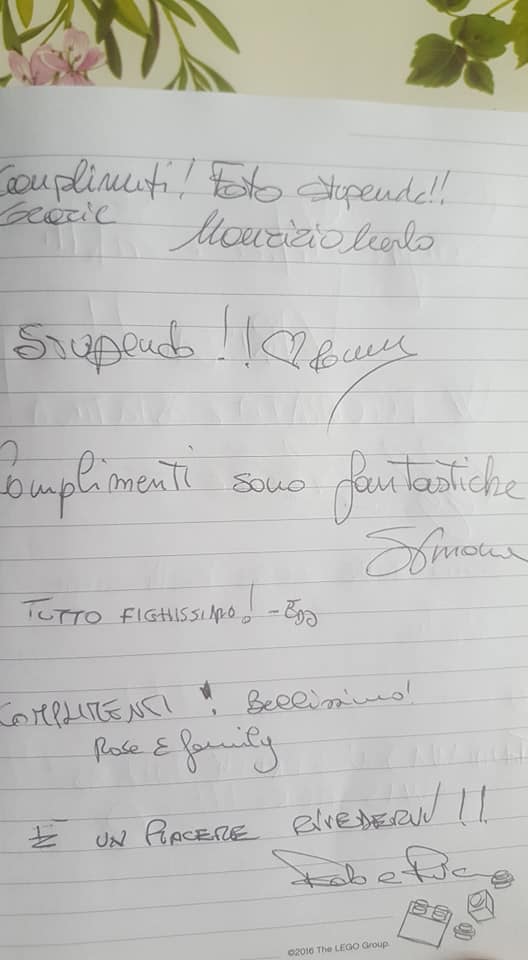 Complimenti! Foto stupende!!
Grazie Maurizio
Stupendo!!
Complimenti sono fantastiche
Simone
TUTTO FIGHISSIMO! -
COMPLIMENTI! Bellissimo!
Rose & family
È UN PIACERE RIVEDERVI!!
©2016 The LEGO Group.